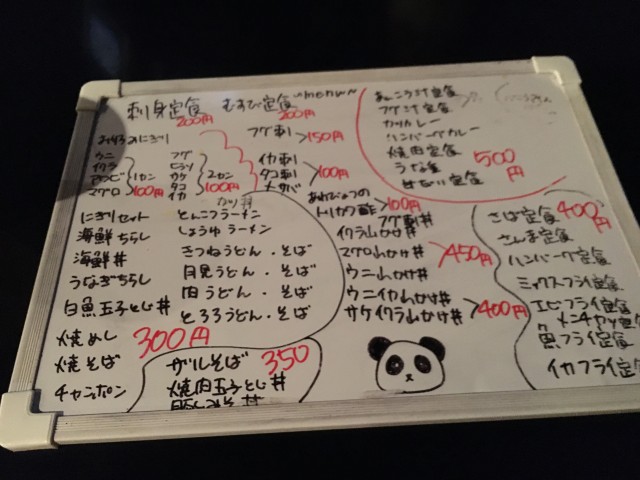 刺身定食 むすび定食 ~menu~
200円 200円
フグ刺 150円
イカ刺
タコ刺 100円
メサバ
100円
トリカワ酢
にぎり
ウニ
イクラ
マグロ
1カン
100円
フグ
ヒラメ
タコ
イカ
2カン
100円
にぎりセット
海鮮ちらし
海鮮丼
うなぎちらし
白魚玉子とじ丼
焼めし
焼そば
チャンポン
300円
とんこつラーメン
しょうゆラーメン
きつねうどん・そば
月見うどん・そば
肉うどん・そば
とろろうどん・そば
ザルそば 350
焼肉玉子とじ丼
フグ刺丼
イクラ山かけ丼
マグロ山かけ丼
ウニ山かけ丼
450円
ウニイカ山かけ丼
サケイクラ山かけ丼
400円
あんこう汁定食
フグ汁定食
カツカレー
ハンバーグカレー
焼肉定食
うな重
500円
さば定食 400円
さんま定食
ハンバーグ定食
ミックスフライ定食
エビフライ定食
メンチカツ定食
魚フライ定食
イカフライ定食